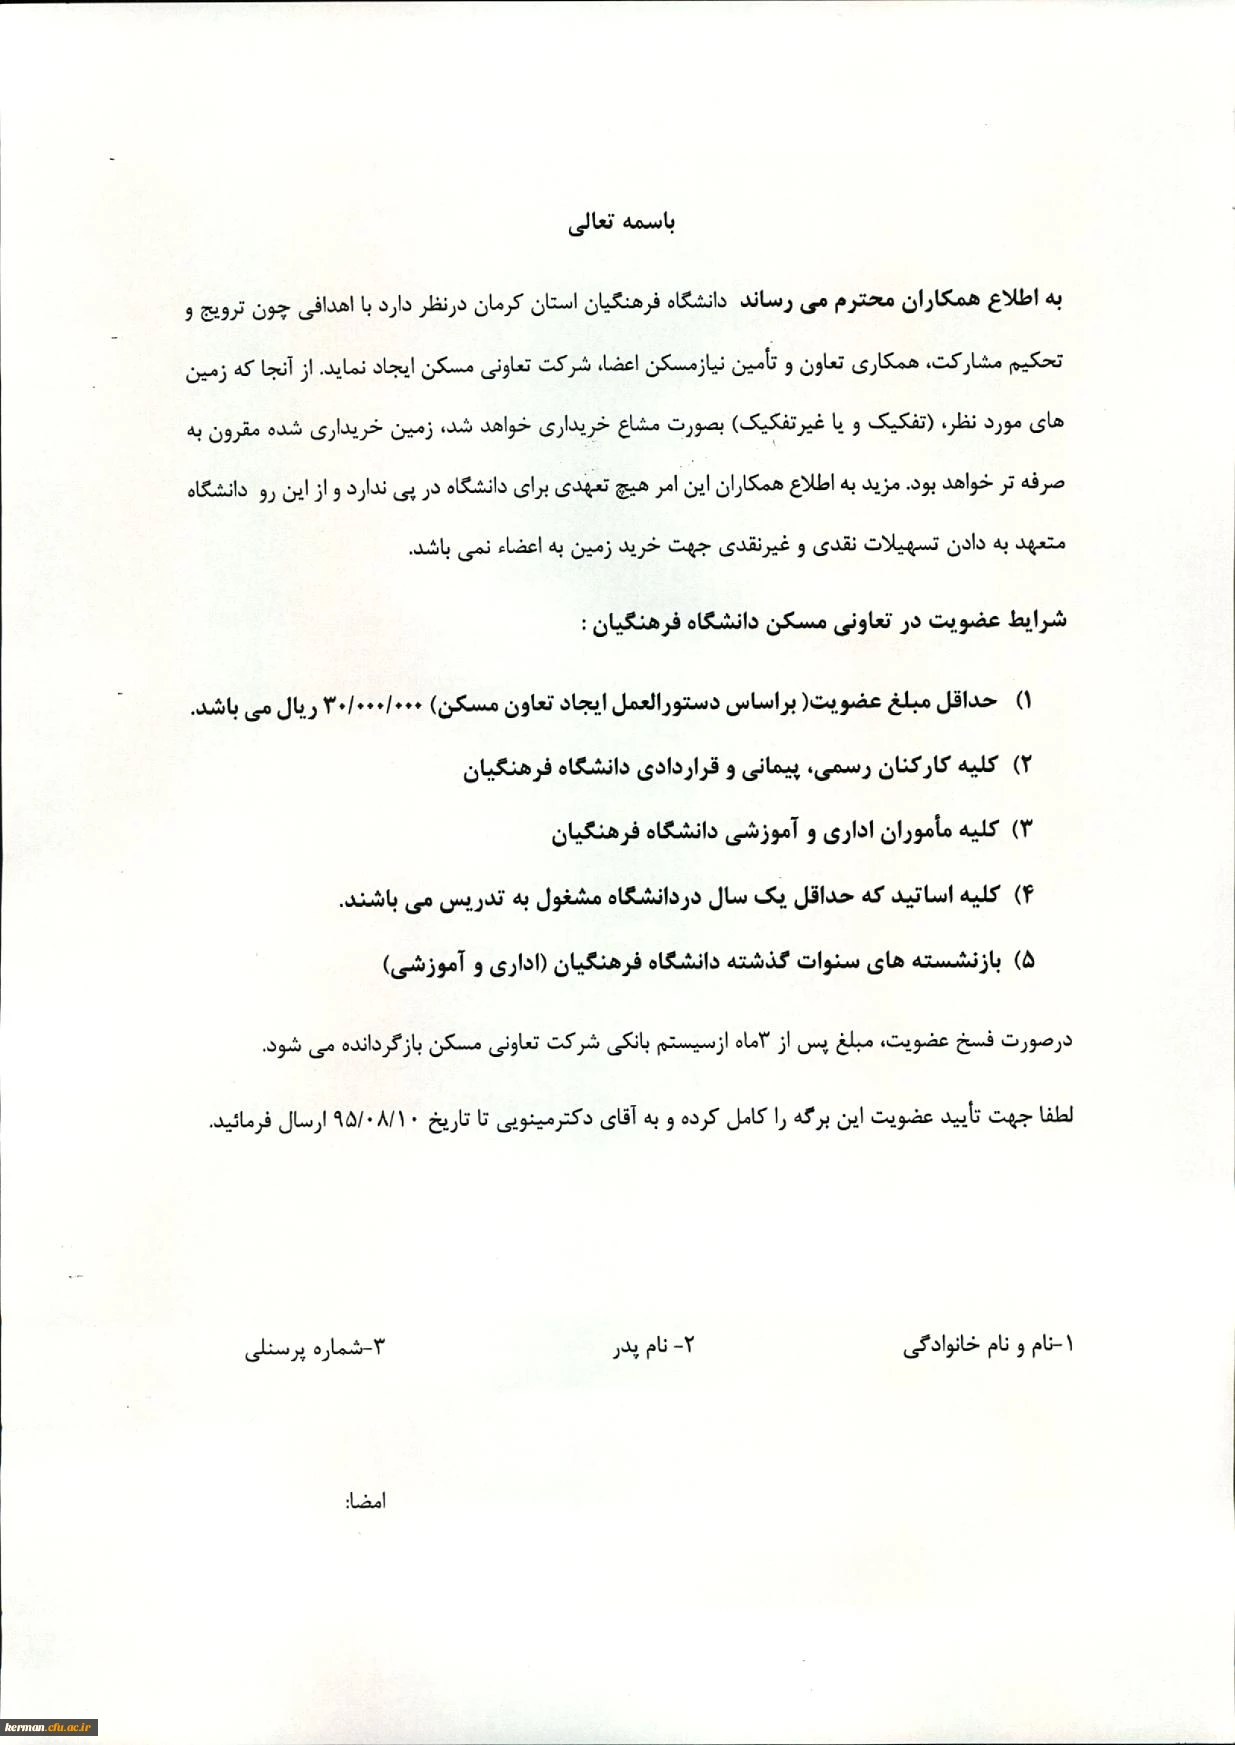 باسمه تعالی
به اطلاع همکاران محترم می رساند دانشگاه فرهنگیان استان کرمان درنظر دارد با اهدافی چون ترویج و
تحکیم مشارکت، همکاری تعاون و تأمین نیازمسکن اعضا، شرکت تعاونی مسکن ایجاد نماید. از آنجا که زمین
های مورد نظر، (تفکیک و یا غیرتفکیک) بصورت مشاع خریداری خواهد شد، زمین خریداری شده مقرون به
صرفه تر خواهد بود. مزید به اطلاع همکاران این امر هیچ تعهدی برای دانشگاه در پی ندارد و از این رو دانشگاه
متعهد به دادن تسهیلات نقدی و غیرنقدی جهت خرید زمین به اعضاء نمی باشد.
شرایط عضویت در تعاونی مسکن دانشگاه فرهنگیان :
۱) حداقل مبلغ عضویت( براساس دستورالعمل ایجاد تعاون مسکن) ۳۰/۰۰۰/۰۰۰ ریال می باشد.
۲) کلیه کارکنان رسمی، پیمانی و قراردادی دانشگاه فرهنگیان
۳) کلیه مأموران اداری و آموزشی دانشگاه فرهنگیان
۴) کلیه اساتید که حداقل یک سال دردانشگاه مشغول به تدریس می باشند.
۵) بازنشسته های سنوات گذشته دانشگاه فرهنگیان (اداری و آموزشی)
درصورت فسخ عضویت، مبلغ پس از ۳ماه ازسیستم بانکی شرکت تعاونی مسکن بازگردانده می شود.
لطفا جهت تأیید عضویت این برگه را کامل کرده و به آقای دکترمینویی تا تاریخ ۹۵/۰۸/۱۰ ارسال فرمائید.
۱-نام و نام خانوادگی ۲- نام پدر ۳-شماره پرسنلی
امضا:
kerman.cfu.ac.ir